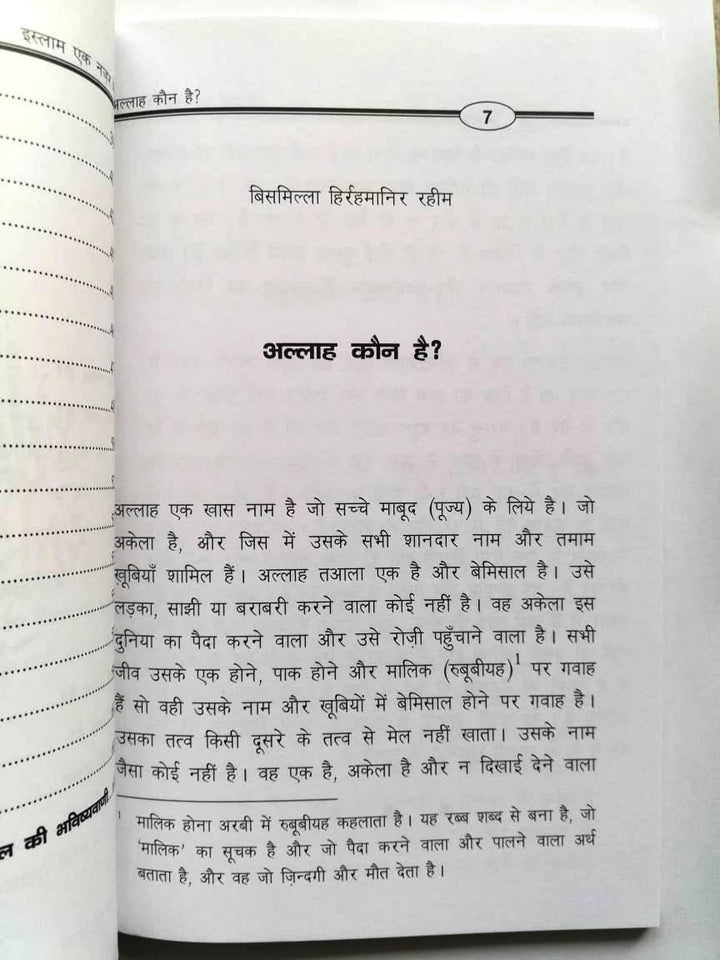 इस्लाम एक नज़र
अल्लाह कौन है?
7
बिसमिल्ला हिर्रहमानिर रहीम
अल्लाह कौन है?
अल्लाह एक खास नाम है जो सच्चे माबूद (पूज्य) के लिये है। जो
अकेला है, और जिस में उसके सभी शानदार नाम और तमाम
ख़ूबियाँ शामिल हैं। अल्लाह तआला एक है और बेमिसाल है। उसे
लड़का, साझी या बराबरी करने वाला कोई नहीं है। वह अकेला इस
दुनिया का पैदा करने वाला और उसे रोज़ी पहुँचाने वाला है। सभी
जीव उसके एक होने, पाक होने और मालिक (रुबूबीयह)¹ पर गवाह
हैं सो वही उसके नाम और खूबियों में बेमिसाल होने पर गवाह है।
उसका तत्व किसी दूसरे के तत्व से मेल नहीं खाता। उसके नाम
जैसा कोई नहीं है। वह एक है, अकेला है और न दिखाई देने वाला
¹ मालिक होना अरबी में रुबूबीयह कहलाता है। यह रब्ब शब्द से बना है, जो
'मालिक' का सूचक है और जो पैदा करने वाला और पालने वाला अर्थ
बताता है, और वह जो ज़िन्दगी और मौत देता है।
की भविष्यवाणी